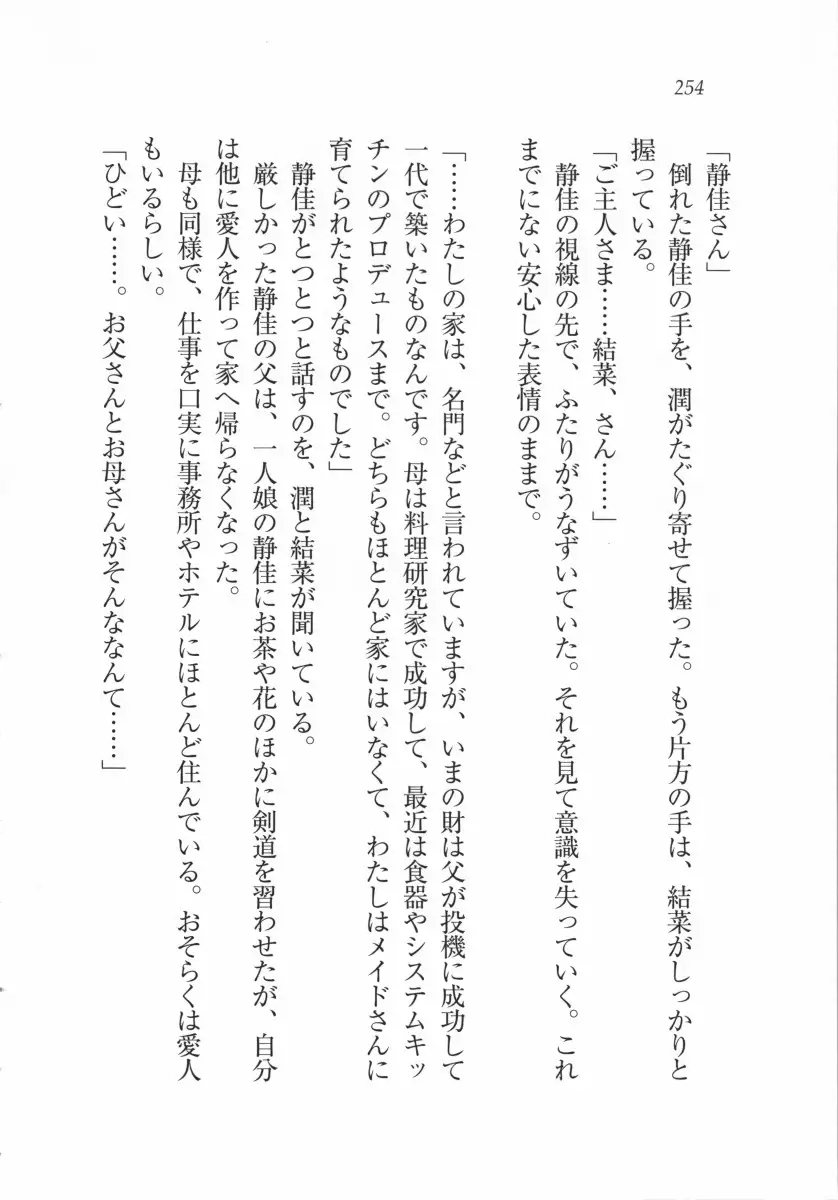 254
「静佳さん」
　倒れた静佳の手を、潤がたぐり寄せて握った。もう片方の手は、結菜がしっかりと
握っている。
「ご主人さま……結菜、さん……」
　静佳の視線の先で、ふたりがうなずいていた。それを見て意識を失っていく。これ
までにない安心した表情のままで。
「……わたしの家は、名門などと言われていますが、いまの財は父が投機に成功して
一代で築いたものなんです。母は料理研究家で成功して、最近は食器やシステムキッ
チンのプロデュースまで。どちらもほとんど家にはいなくて、わたしはメイドさんに
育てられたようなものでした」
　静佳がとつとつと話すのを、潤と結菜が聞いている。
　厳しかった静佳の父は、一人娘の静佳にお茶や花のほかに剣道を習わせたが、自分
は他に愛人を作って家へ帰らなくなった。
　母も同様で、仕事を口実に事務所やホテルにほとんど住んでいる。おそらくは愛人
もいるらしい。
「ひどい……。お父さんとお母さんがそんななんて……」